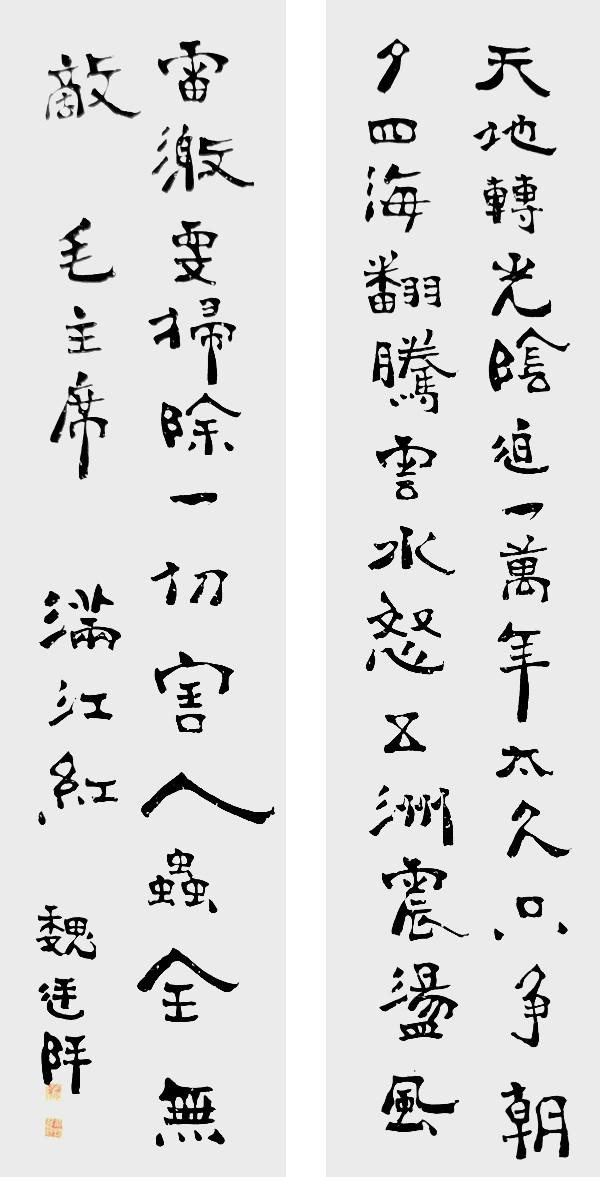 天地轉光陰迫一萬年太久只争朝
夕四海翻騰雲水怒五洲震盪風
雷激要掃除一切害人蟲全無
敵 毛主席 滿江紅 魏